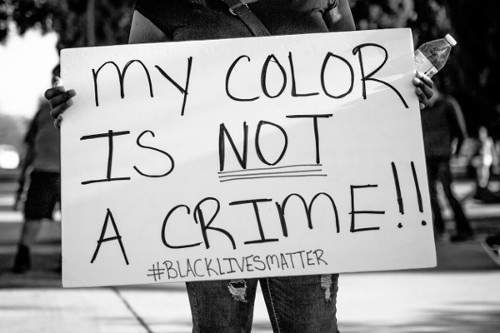 MY COLOR
IS NOT
A CRIME!!
#BLACKLIVESMATTER